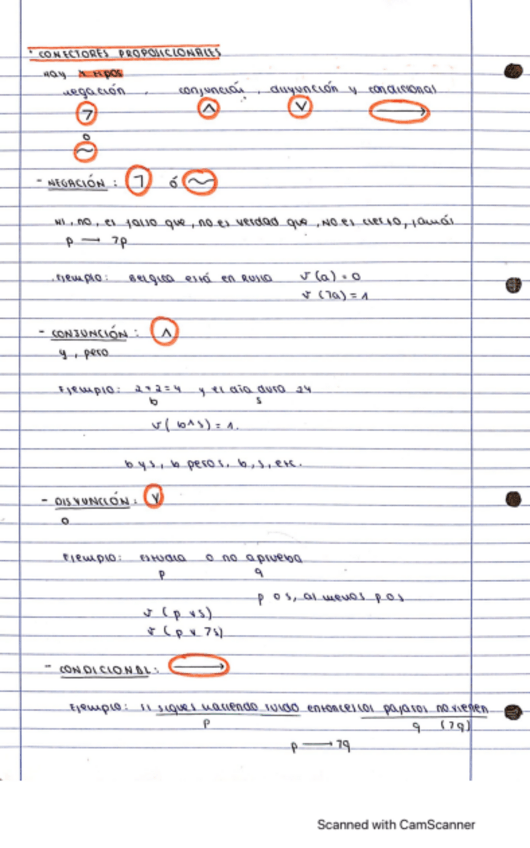 · CONECTORES PROPOSICIONALES
HAY 4 TIPOS
negación , conjunción , disyunción y condicional
¬ ∧ ∨ →
o
~
- NEGACIÓN : ¬ ó ~
NI, NO, es falso que, no es verdad que, NO es cierto, jamás
p → ¬p
Ejemplo: Belgica está en Rusia v(a)=0
v(¬a)=1
- CONJUNCIÓN : ∧
y , pero
Ejemplo: 2+2=4 y el día dura 24
b s
v(b∧s)=1.
b y s, b pero s, b, s, etc.
- DISYUNCIÓN : ∨
o
Ejemplo: estudia o no aprueba
p q
p o s, al menos p o s
v (p ∨ s)
v (p ∨ ¬s)
- CONDICIONAL : →
Ejemplo: si sigues haciendo ruido entonces los pajaros no vienen
p q (¬q)
p → ¬q
Scanned with CamScanner